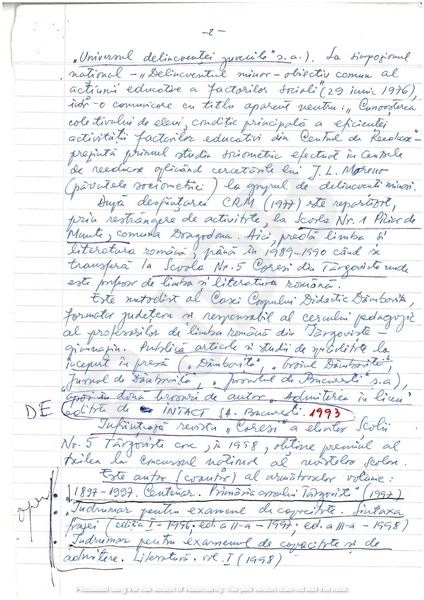 - 2 -
„Universul delincvenței juvenile" s.a.). La simpozionul
național - „Delincventul minor - obiectiv comun al
acțiunii educative a factorilor sociali" (29 iunie 1976),
într-o comunicare cu titlu aparent neutru: „Cunoașterea
colectivului de elevi, condiție principală a eficienței
activității factorilor educativi din Centrul de Reeducare" -
prezintă primul studiu sociometric efectuat în Centrele
de reeducare aplicând cercetările lui J. L. Moreno
(părintele sociometriei) la grupul de delincvenți minori.
După desființarea CRM (1977) este repartizat,
prin restrângere de activitate, la Școala Nr. 1 Picior de
Munte, comuna Dragodana. Aici, predă limba și
literatura română până în 1989-1990 când se
transferă la Școala Nr. 5 Coresi din Târgoviște unde
este profesor de limba și literatura română.
Este metodist al Casei Corpului Didactic Dâmbovița,
formator județean și responsabil al cercului pedagogic
al profesorilor de limba română din Târgoviște -
gimnaziu. Publică articole și studii de specialitate la
început în presă („Dâmbovița", „Graiul Dâmboviței",
Jurnal de Dâmbovița, „ de București" s.a.),
apoi în două broșuri de autor „Admiterea în liceu"
DE editate de INTACT SA. București. 1993
Înființează revista „Coresi" a elevilor Școlii
Nr. 5 Târgoviște care, în 1998, obține premiul al
treilea la concursul național al revistelor școlare.
Este autor (coautor) al următoarelor volume:
opere • 1897-1997. Centenar. Primăria orașului Târgoviște" (1997)
• „Îndrumar pentru examenul de capacitate. Sintaxa
frazei (ediția I - 1996. ed. a II-a - 1997, ed. a III-a - 1998)
• Îndrumar pentru examenul de capacitate și de
admitere. Literatură. vol. I (1998)